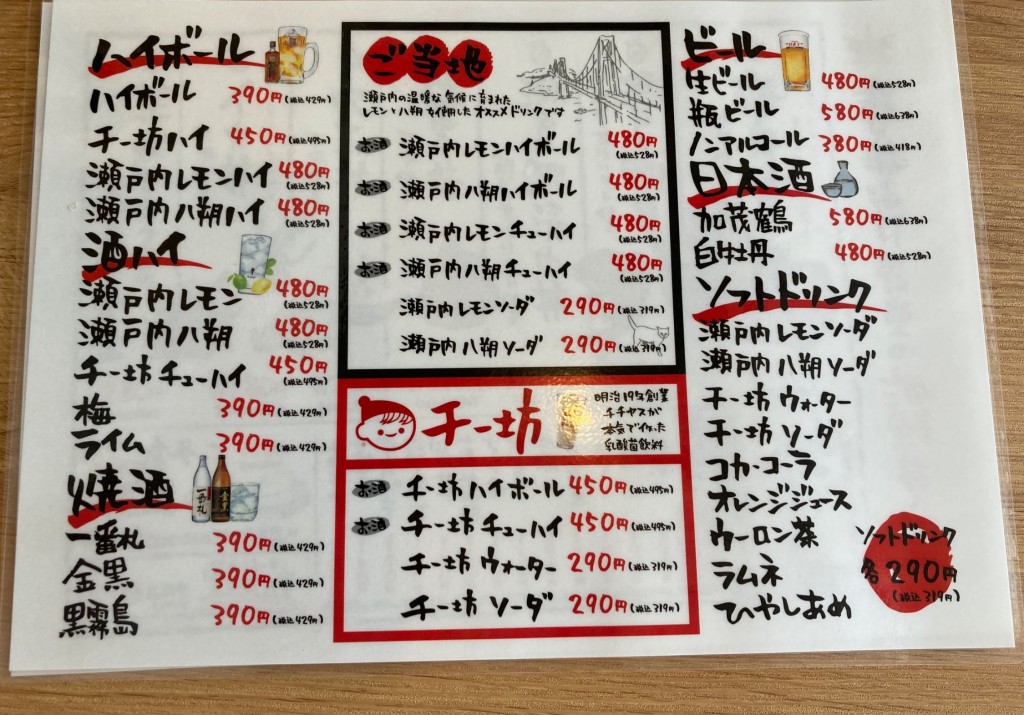 ハイボール
ハイボール 390円(税込429円)
チー坊ハイ 450円(税込495円)
瀬戸内レモンハイ 480円(税込528円)
瀬戸内八朔ハイ 480円(税込528円)
酒ハイ
瀬戸内レモン 480円(税込528円)
瀬戸内八朔 480円(税込528円)
チー坊チューハイ 450円(税込495円)
梅 390円(税込429円)
ライム 390円(税込429円)
焼酒
一番札 390円(税込429円)
金黒 390円(税込429円)
黒霧島 390円(税込429円)
ご当地
瀬戸内の温暖な気候に育まれた
レモンと八朔を使用したオススメドリンクです
お酒 瀬戸内レモンハイボール 480円(税込528円)
お酒 瀬戸内八朔ハイボール 480円(税込528円)
お酒 瀬戸内レモンチューハイ 480円(税込528円)
お酒 瀬戸内八朔チューハイ 480円(税込528円)
瀬戸内レモンソーダ 290円(税込319円)
瀬戸内八朔ソーダ 290円(税込319円)
チー坊
明治19年創業
チチヤスが
本気で作った
乳酸菌飲料
お酒 チー坊ハイボール 450円(税込495円)
お酒 チー坊チューハイ 450円(税込495円)
チー坊ウォーター 290円(税込319円)
チー坊ソーダ 290円(税込319円)
ビール
生ビール 480円(税込528円)
瓶ビール 580円(税込638円)
ノンアルコール 380円(税込418円)
日本酒
加茂鶴 580円(税込638円)
白牡丹 480円(税込528円)
ソフトドリンク
瀬戸内レモンソーダ
瀬戸内八朔ソーダ
チー坊ウォーター
チー坊ソーダ
コカ・コーラ
オレンジジュース
ウーロン茶
ラムネ
ひやしあめ
ソフトドリンク
各290円
(税込319円)